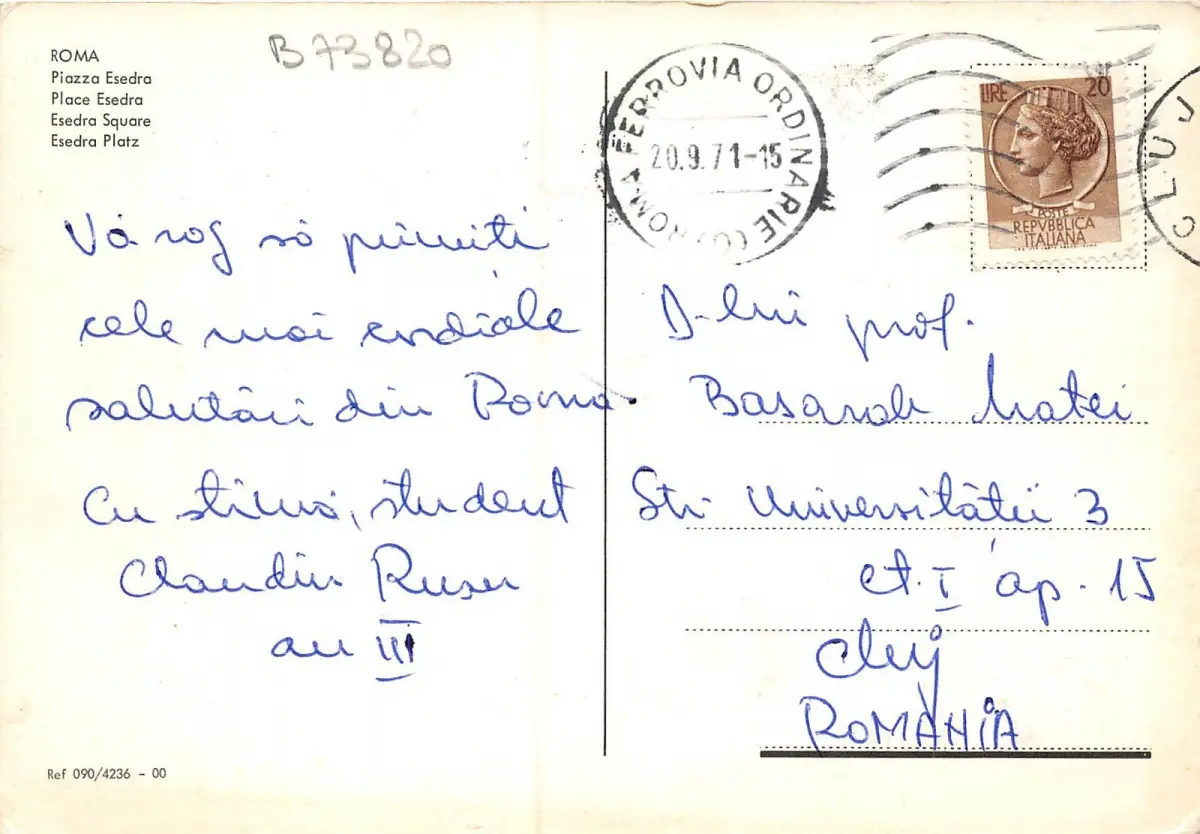 ROMA
Piazza Esedra
Place Esedra
Esedra Square
Esedra Platz
B 73820
ROMA FERROVIA ORDINARIE (C)
20.9.71-15
LIRE 20
POSTE
REPVBBLICA
ITALIANA
CLUJ
Vă rog să primiți
cele mai cordiale
salutări din Roma.
Cu stimă, student
Claudiu Rusu
an III
D-lui prof.
Basarab Matei
Str Universității 3
et. I ap. 15
Cluj
ROMÂNIA
Ref 090/4236 - 00